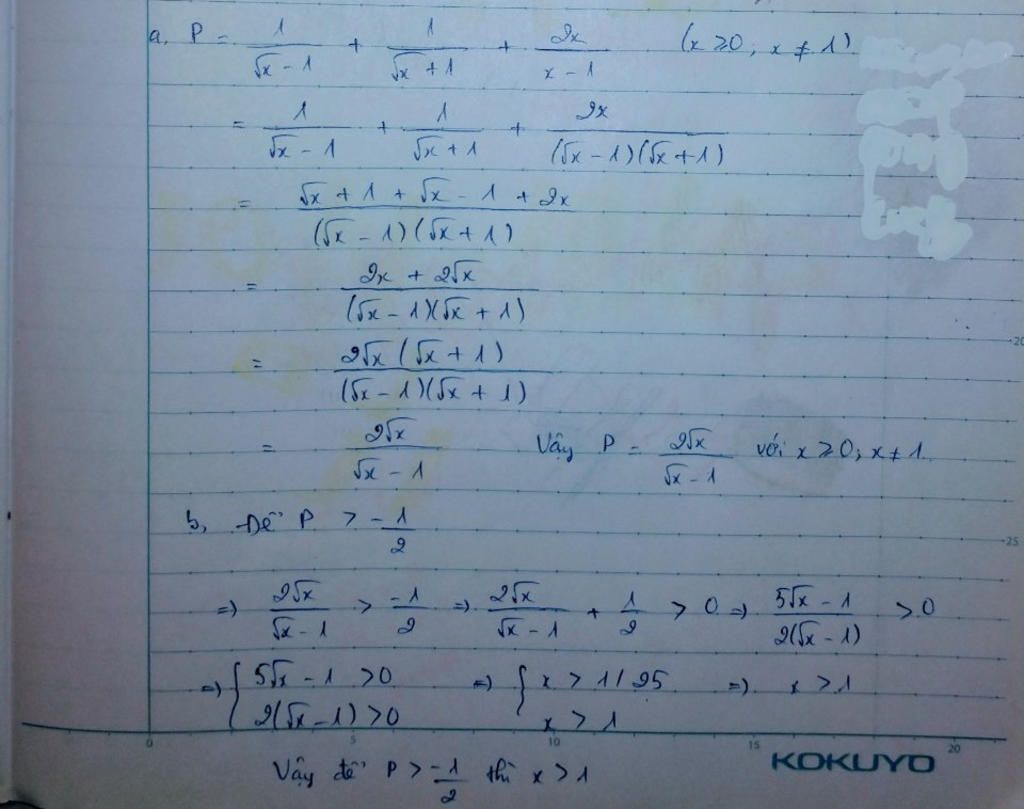 a, P = 1/(√x - 1) + 1/(√x + 1) + 2x/(x - 1) (x ≥ 0, x ≠ 1)
= 1/(√x - 1) + 1/(√x + 1) + 2x/((√x - 1)(√x + 1))
= (√x + 1 + √x - 1 + 2x)/((√x - 1)(√x + 1))
= (2x + 2√x)/((√x - 1)(√x + 1))
= (2√x(√x + 1))/((√x - 1)(√x + 1))
= 2√x/(√x - 1) Vậy P = 2√x/(√x - 1) với x ≥ 0; x ≠ 1.
b, Để P > -1/2
=) 2√x/(√x - 1) > -1/2 =) 2√x/(√x - 1) + 1/2 > 0 =) (5√x - 1)/(2(√x - 1)) > 0
=) { 5√x - 1 > 0 =) { x > 1/25 =) x > 1
2(√x - 1) > 0 x > 1
Vậy để P > -1/2 thì x > 1
20
25
0 5 10 15 20
KOKUYO